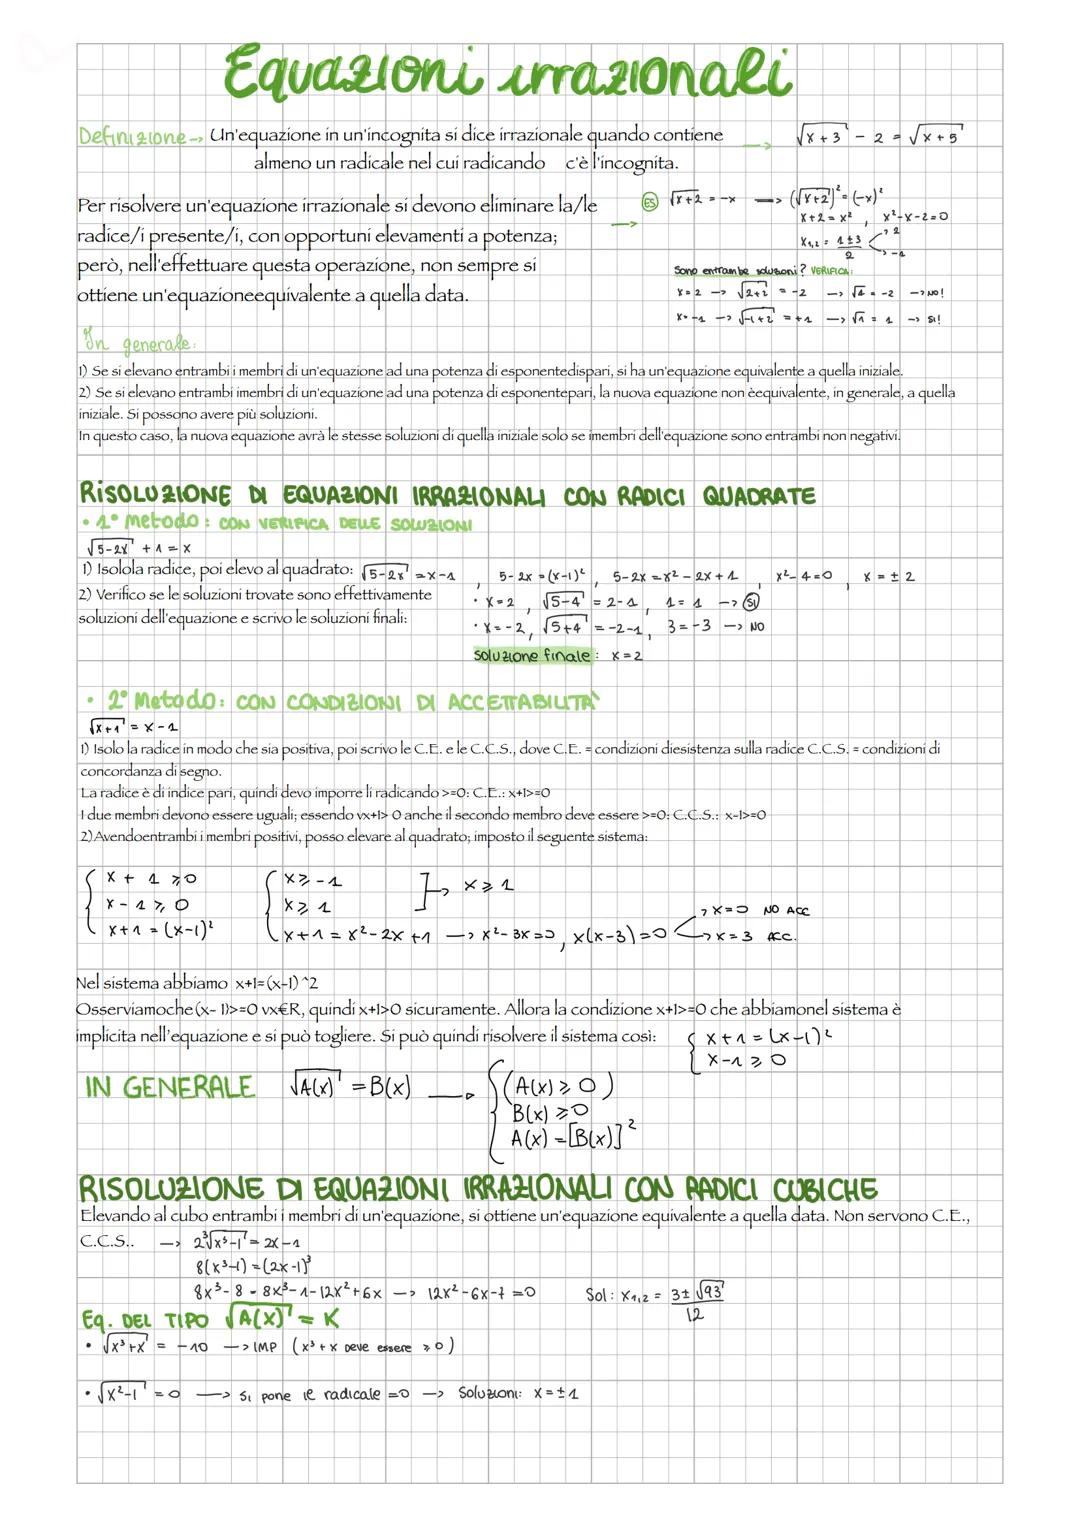 Equazioni irrazionali
Definizione → Un'equazione in un'incognita si dice irrazionale quando contiene → √(x+3) - 2 = √(x+5)
almeno un radicale nel cui radicando c'è l'incognita.
Per risolvere un'equazione irrazionale si devono eliminare la/le
radice/i presente/i, con opportuni elevamenti a potenza;
però, nell'effettuare questa operazione, non sempre si
ottiene un'equazioneequivalente a quella data.
→ ES √(x+2) = -x → (√(x+2))² = (-x)²
x+2 = x² , x²-x-2=0
x₁,₂ = (1±3)/2 → 2 → -1
Sono entrambe soluzioni? VERIFICA:
x=2 → √(2+2) = -2 → √4 = -2 → NO!
x=-1 → √(-1+2) = +1 → √1 = 1 → SI!
In generale:
1) Se si elevano entrambi i membri di un'equazione ad una potenza di esponentedispari, si ha un'equazione equivalente a quella iniziale.
2) Se si elevano entrambi imembri di un'equazione ad una potenza di esponentepari, la nuova equazione non èequivalente, in generale, a quella
iniziale. Si possono avere più soluzioni.
In questo caso, la nuova equazione avrà le stesse soluzioni di quella iniziale solo se imembri dell'equazione sono entrambi non negativi.
RISOLUZIONE DI EQUAZIONI IRRAZIONALI CON RADICI QUADRATE
• 1° Metodo: CON VERIFICA DELLE SOLUZIONI
√(5-2x) + 1 = x
1) Isolola radice, poi elevo al quadrato: √(5-2x) = x-1 , 5-2x = (x-1)² , 5-2x = x² - 2x + 1 , x²-4=0 , x = ± 2
2) Verifico se le soluzioni trovate sono effettivamente
soluzioni dell'equazione e scrivo le soluzioni finali:
• x=2 , √(5-4) = 2-1 , 1 = 1 → SI
• x=-2 , √(5+4) = -2-1 , 3 = -3 → NO
soluzione finale: x=2
• 2° Metodo: CON CONDIZIONI DI ACCETTABILITÀ
√(x+1) = x-1
1) Isolo la radice in modo che sia positiva, poi scrivo le C.E. e le C.C.S., dove C.E. = condizioni diesistenza sulla radice C.C.S. = condizioni di
concordanza di segno.
La radice è di indice pari, quindi devo imporre li radicando >=0: C.E.: x+1>=0
I due membri devono essere uguali; essendo vx+1> 0 anche il secondo membro deve essere >=0: C.C.S.: x-1>=0
2)Avendoentrambi i membri positivi, posso elevare al quadrato; imposto il seguente sistema:
{ x + 1 ⩾ 0 { x ⩾ -1 ] → x ⩾ 1
x - 1 ⩾ 0 x ⩾ 1
x+1 = (x-1)² x+1 = x²-2x+1 → x²-3x=0 , x(x-3)=0 → x=0 NO ACC → x=3 ACC.
Nel sistema abbiamo x+1=(x-1)^2
Osserviamoche(x- 1)>=0 vx€R, quindi x+1>0 sicuramente. Allora la condizione x+1>=0 che abbiamonel sistema è
implicita nell'equazione e si può togliere. Si può quindi risolvere il sistema così: { x+1 = (x-1)²
x-1 ⩾ 0
IN GENERALE √A(x) = B(x) → { (A(x) ⩾ 0)
B(x) ⩾ 0
A(x) = [B(x)]²
RISOLUZIONE DI EQUAZIONI IRRAZIONALI CON RADICI CUBICHE
Elevando al cubo entrambi i membri di un'equazione, si ottiene un'equazione equivalente a quella data. Non servono C.E.,
C.C.S.. → 2∛(x³-1) = 2x-1
8(x³-1) = (2x-1)³
8x³-8 = 8x³-1-12x²+6x → 12x²-6x-7=0 Sol: x₁,₂ = (3±√93)/12
Eq. DEL TIPO √A(x) = K
• √(x³+x) = -10 → IMP (x³+x Deve essere ⩾ 0)
• √(x²-1) = 0 → si pone il radicale =0 → Soluzioni: x=±1